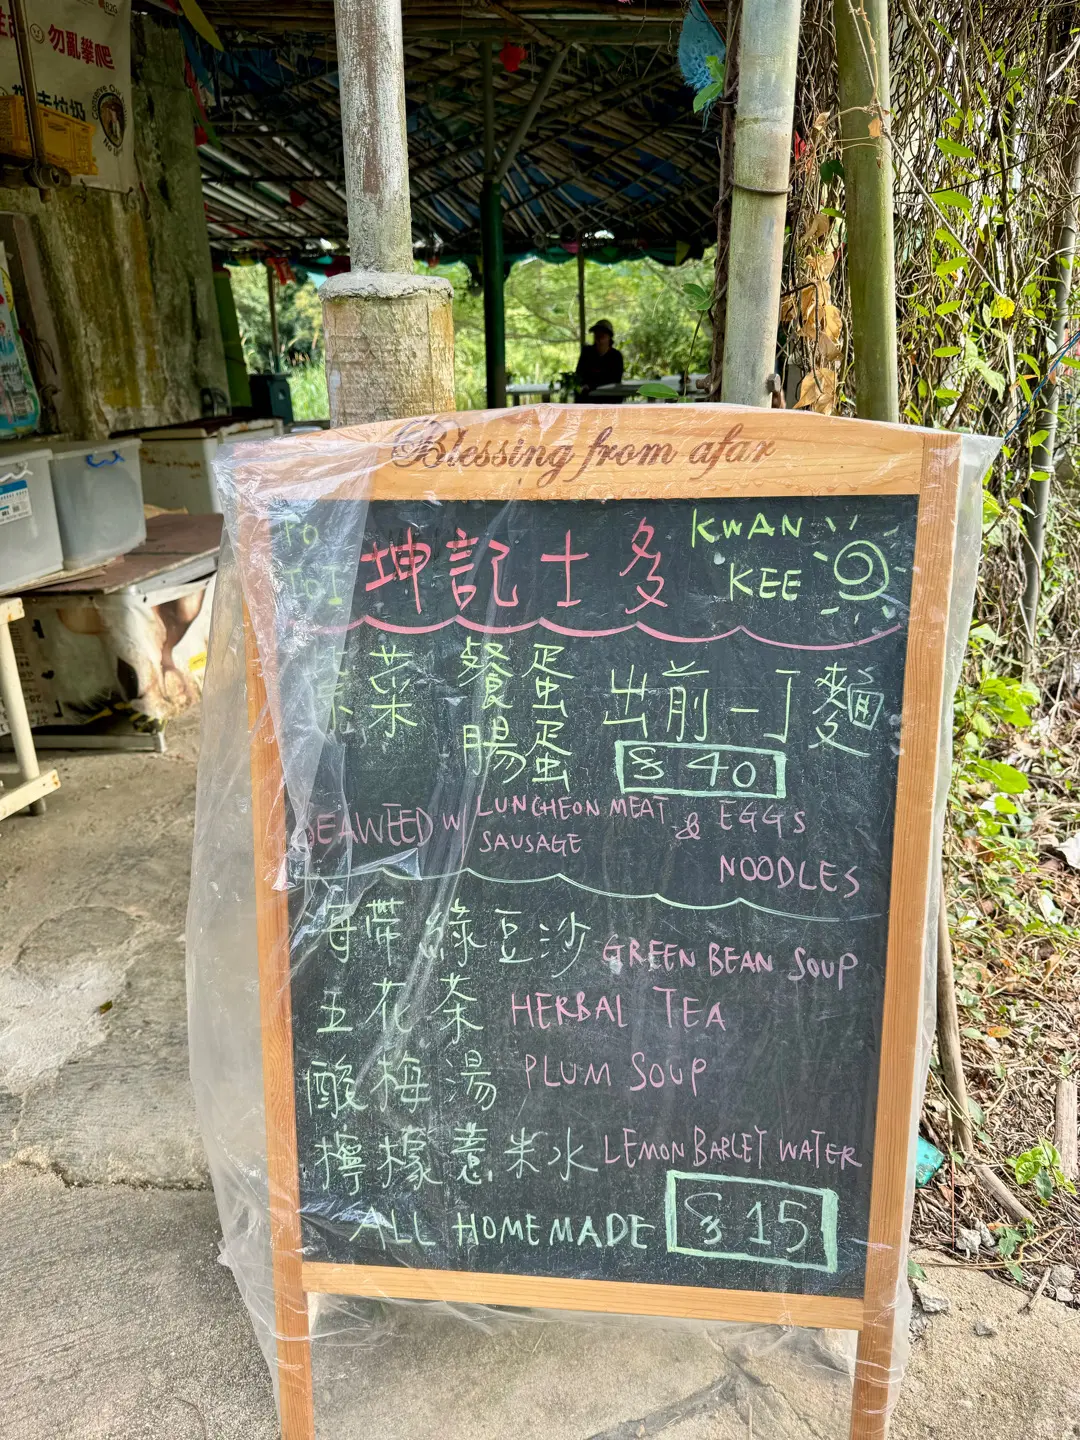 勿亂攀爬
Blessing from afar
To
坤記士多
KWAN
KEE
菜
餐蛋
腸蛋
出前一丁麵
$ 40
SEAWEED W
LUNCHEON MEAT
SAUSAGE
& EGGS
NOODLES
海帶綠豆沙 GREEN BEAN SOUP
五花茶 HERBAL TEA
酸梅湯 PLUM SOUP
檸檬薏米水 LEMON BARLEY WATER
ALL HOMEMADE $ 15